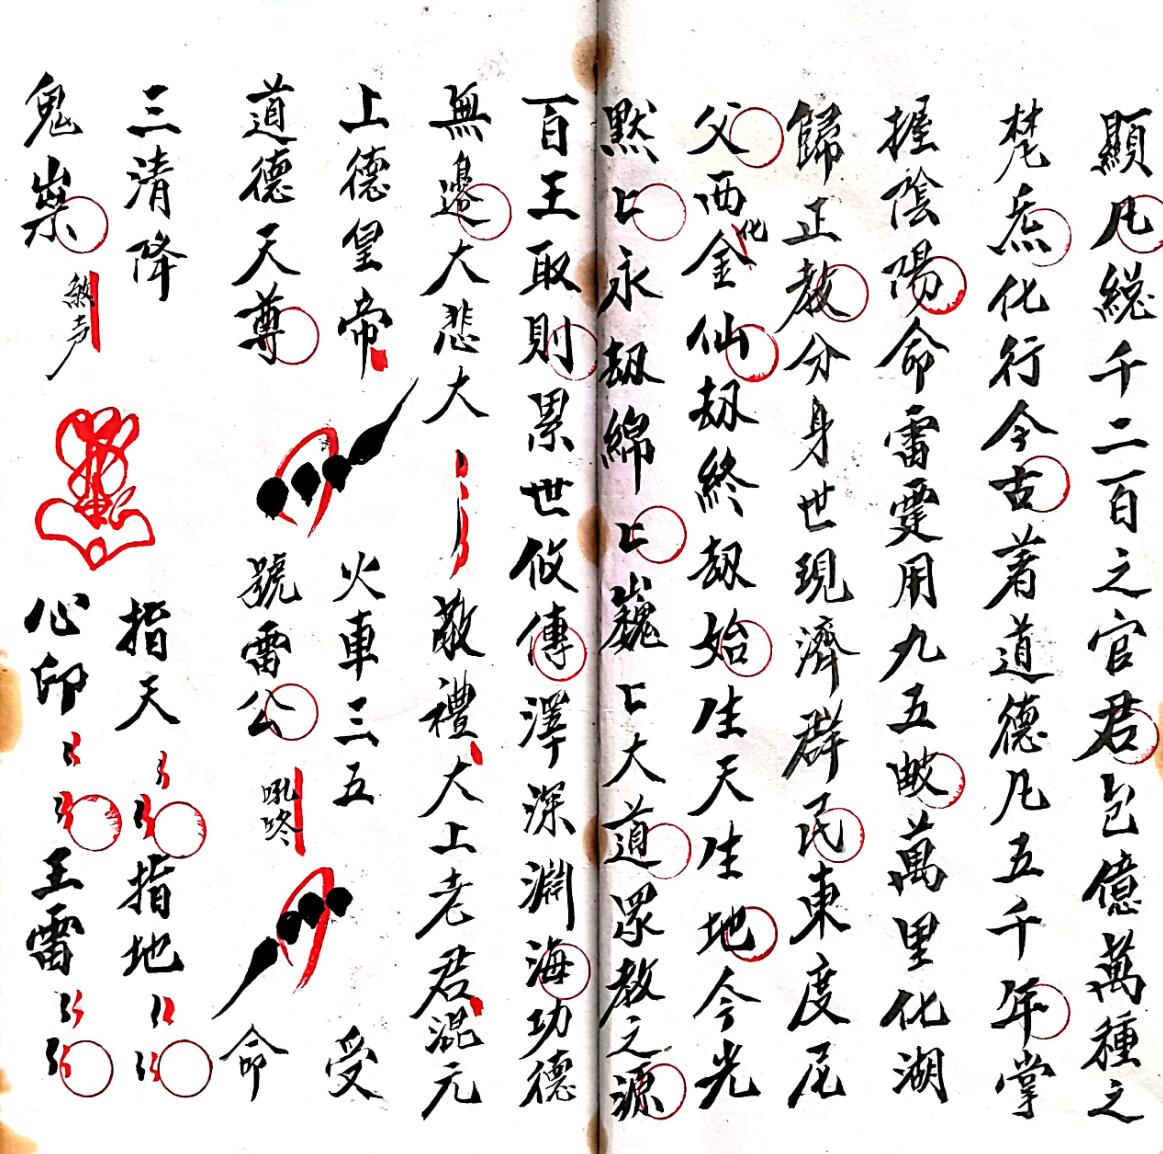 顯凡總千二百之官君包億萬種之
梵炁化行今古著道德凡五千年掌
握陰陽命雷霆用九五皈萬里化湖
歸正教分身世現濟群民東度尼
父西化金仙劫終劫始生天生地今光
默〻永劫綿〻巍〻大道眾教之源
百王取則累世攸傳澤深淵海功德
無邊大悲大 敬禮大上老君混元
上德皇帝 火車三五 受
道德天尊 號雷公 吼咚 命
三清降 指天 指地
鬼祟 煞声 心印 王雷